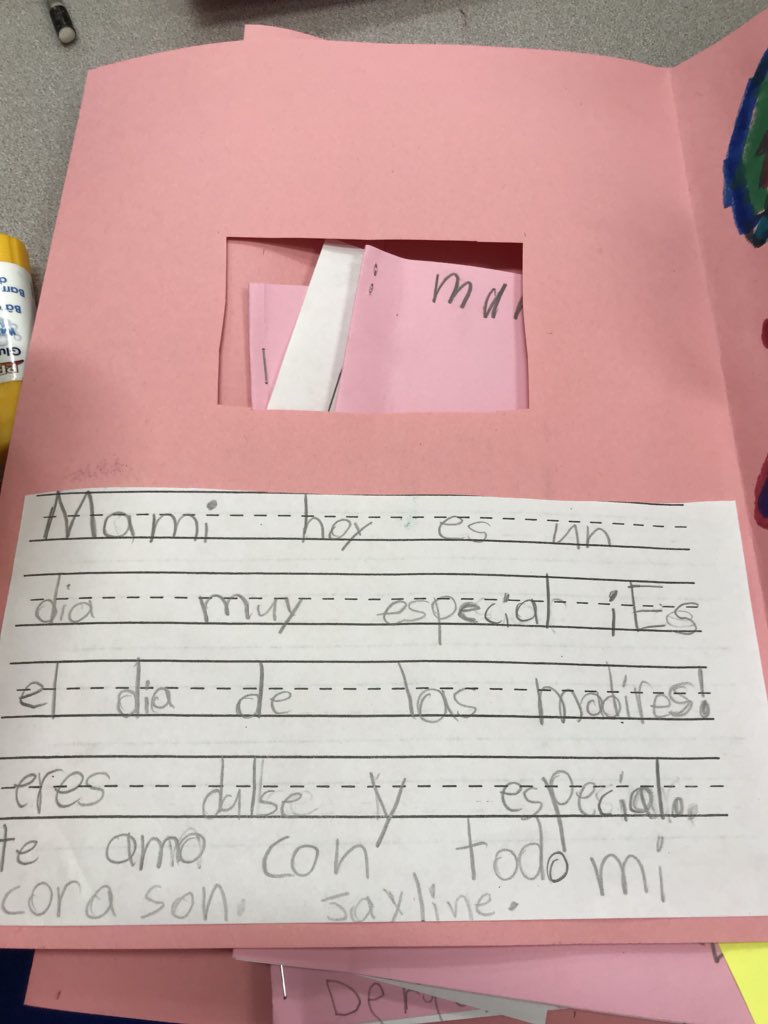 Mami hoy es un
dia muy especial ¡Es
el dia de las madires!
eres dulse y especial.
te amo con todo mi
corason. Jayline.